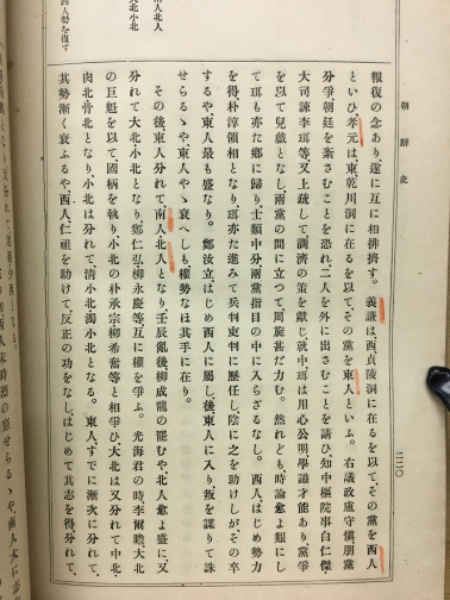 朝鮮史
二二〇
南人北人
大北小北
西人勢を復す
報復の念あり、遂に互に相排擠す。義謙は、西貞陵洞に在るを以て、その黨を西人
といひ、孝元は、東乾川洞に在るを以て、その黨を東人といふ。右議政盧守愼、朋黨
分爭、朝廷を紊さむことを恐れ、二人を外に出さむことを請ひ、知中樞院事白仁傑・
大司諫李珥等、又上疏して調濟の策を獻じ、就中、珥は用心公明、學識才能あり、黨爭
を以て兒戲となし、兩黨の間に立つて、周旋甚だ力む。然れども、時論愈よ艱にし
て、珥も亦た鄕に歸り、士類中分、兩黨指目の中に入らざるなし。西人、はじめ勢力
を得、朴淳領相となり、珥亦た進みて兵判吏判に歷任し、陰に之を助けしが、その卒
するや、東人最も盛なり。鄭汝立、はじめ西人に屬し、後、東人に入り、叛を謀りて誅
せらるゝや、東人やゝ衰へしも、權勢なほ其手に在り。
その後、東人分れて、南人、北人となり、壬辰亂後、柳成龍の罷むや、北人愈よ盛に、又
分れて大北小北となり、鄭仁弘・柳永慶等、互に權を爭ふ。光海君の時、李爾瞻、大北
の巨魁を以て、國柄を執り、小北の朴承宗・柳希奮等と相爭ひ、大北は又分れて中北・
肉北・骨北となり、小北は分れて、淸小北・濁小北となる。東人すでに漸次に分れて、
其勢漸く衰ふるや、西人、仁祖を助けて、反正の功をなし、はじめて其志を得、分れて、